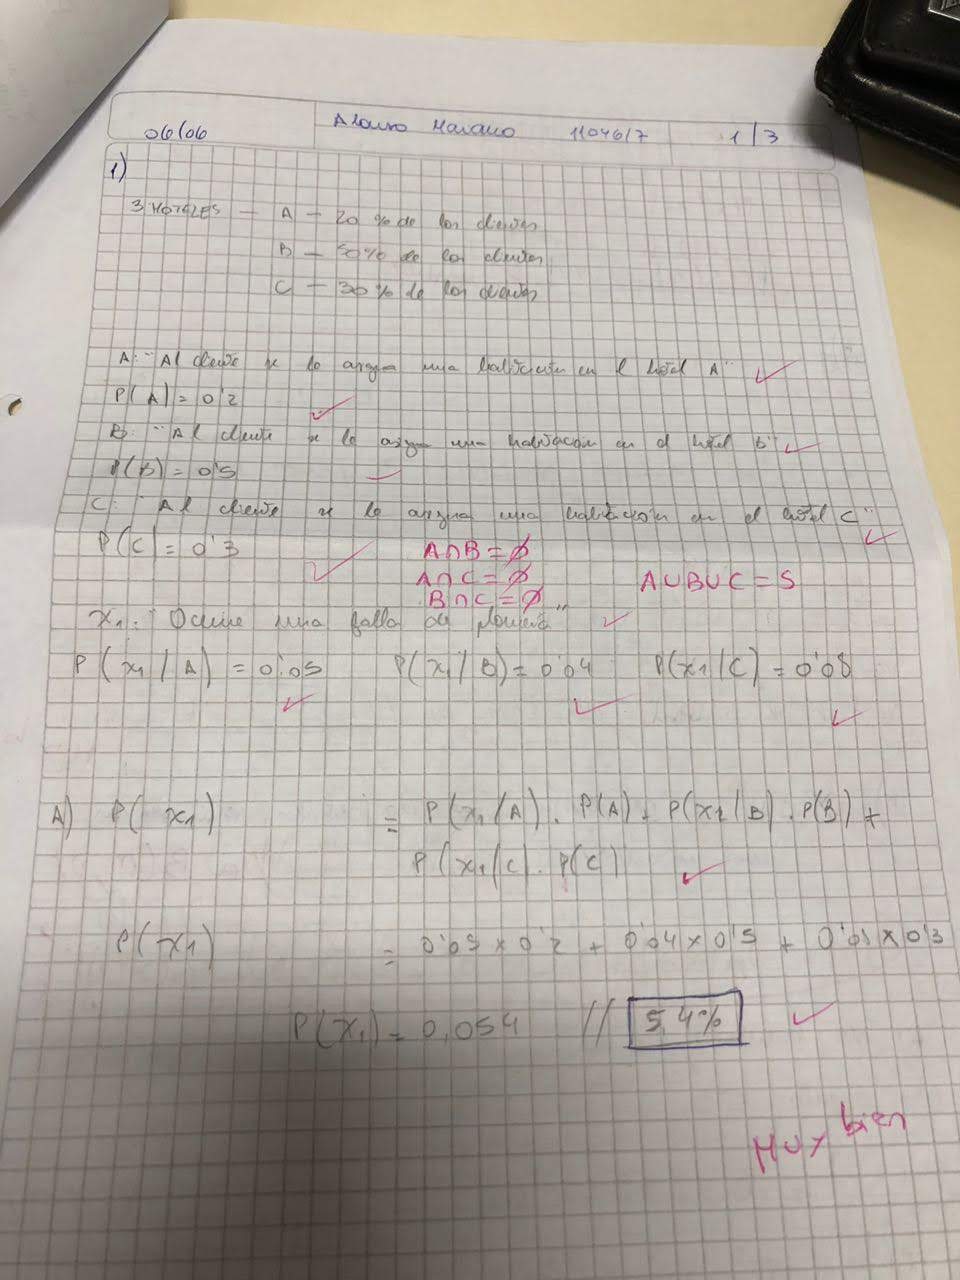 06/06
Alonso Mariano 1104617 1/3
1)
3 HOTELES — A — 20 % de los clientes
B — 50% de los clientes
C — 30% de los clientes
A: "Al cliente se le asigna una habitación en el hotel A"
P(A) = 0'2
B: "Al cliente se le asigna una habitación en el hotel B"
P(B) = 0'5
C: "Al cliente se le asigna una habitación en el hotel C"
P(C) = 0'3
A∩B = ∅
A∩C = ∅
B∩C = ∅
A∪B∪C = S
x1: "Ocurre una falla de plomería"
P(x1/A) = 0'05 P(x1/B) = 0'04 P(x1/C) = 0'08
A) P(x1) = P(x1/A). P(A) + P(x1/B). P(B) +
P(x1/C). P(C)
P(x1) = 0'05 x 0'2 + 0'04 x 0'5 + 0'08 x 0'3
P(x1) = 0,054 // 5,4%
Muy bien